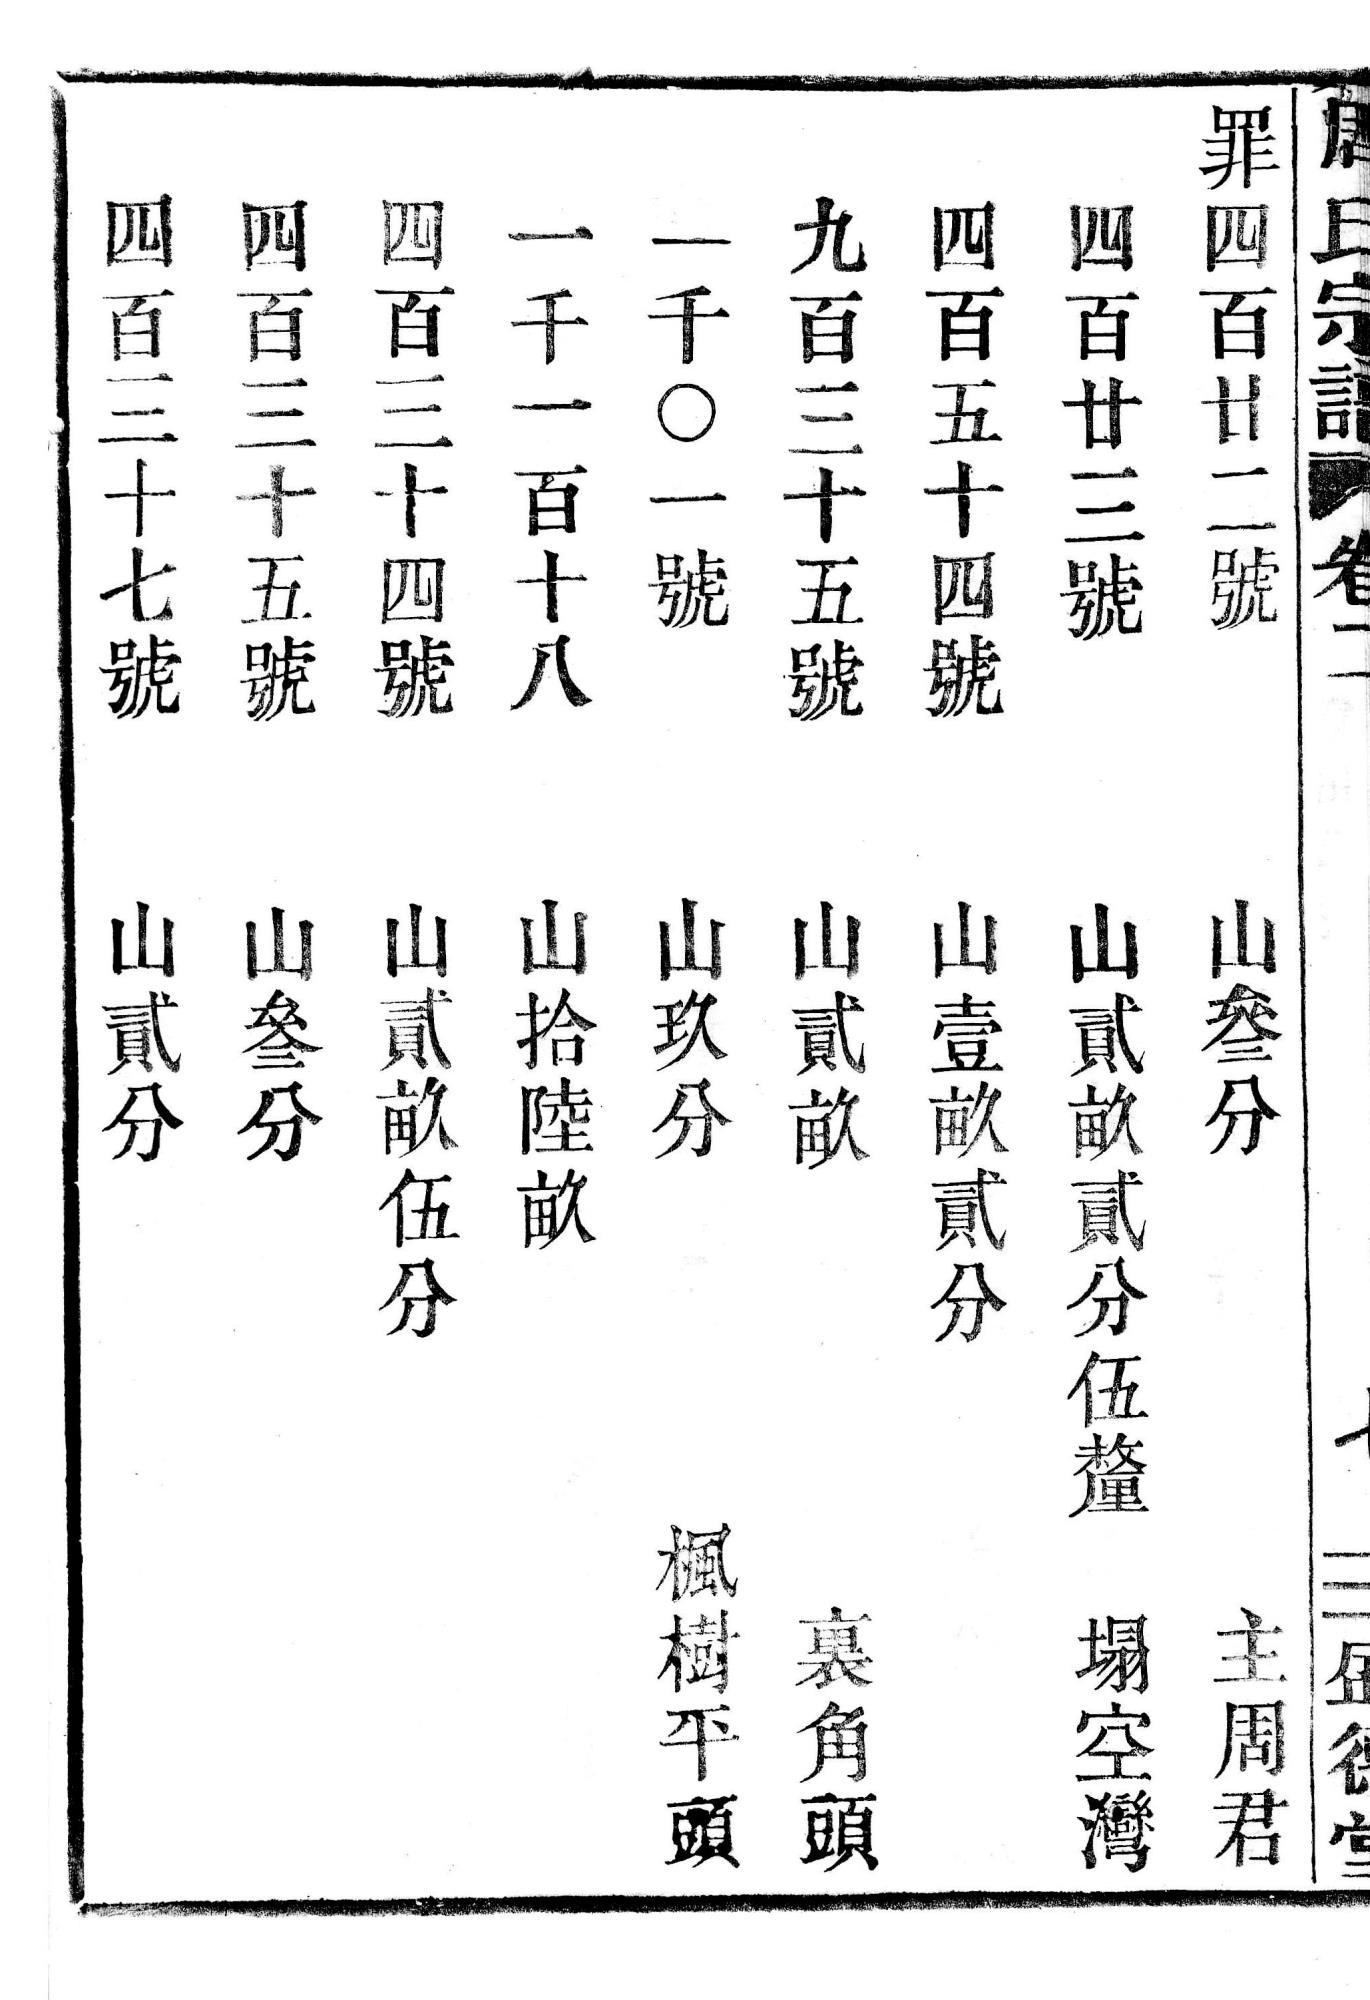 氏宗譜 卷二
罪四百廿二號 山叄分 主周君
四百廿三號 山貳畝貳分伍釐 塌空灣
四百五十四號 山壹畝貳分
九百三十五號 山貳畝 裏角頭
一千〇一號 山玖分 楓樹平頭
一千一百十八 山拾陸畝
四百三十四號 山貳畝伍分
四百三十五號 山叄分
四百三十七號 山貳分